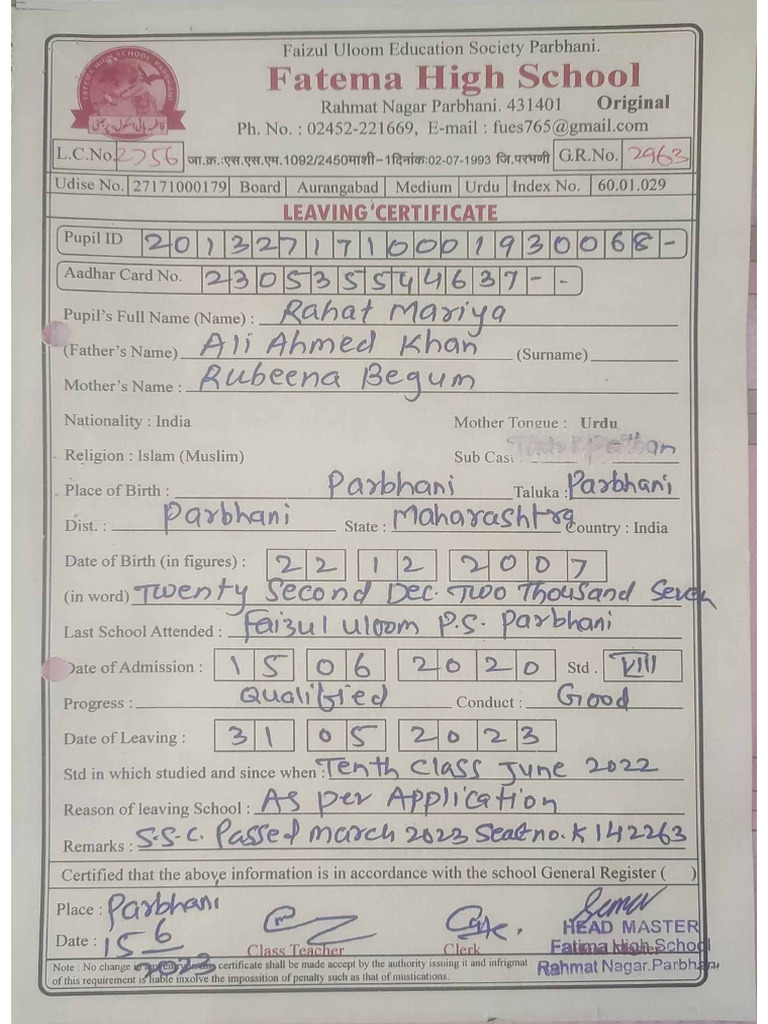 FATEMA HIGH SCHOOL PARBHANI
Faizul Uloom Education Society Parbhani.
Fatema High School
Rahmat Nagar Parbhani. 431401 Original
Ph. No. : 02452-221669, E-mail : fues765@gmail.com
L.C.No. 2756 जा.क्र.:एस.एस.एम.1092/2450माशी-1दिनांक:02-07-1993 जि.परभणी G.R.No. 2963
Udise No. 27171000179 Board Aurangabad Medium Urdu Index No. 60.01.029
LEAVING CERTIFICATE
Pupil ID 2013271710001930068-
Aadhar Card No. 230535544637--
Pupil's Full Name (Name) : Rahat Mariya
(Father's Name) Ali Ahmed Khan (Surname)
Mother's Name : Rubeena Begum
Nationality : India Mother Tongue : Urdu
Religion : Islam (Muslim) Sub Cast
Place of Birth : Parbhani Taluka : Parbhani
Dist. : Parbhani State : Maharashtra Country : India
Date of Birth (in figures) : 22 12 2007
(in word) Twenty Second Dec. Two Thousand Seven
Last School Attended : Faizul uloom P.S. Parbhani
Date of Admission : 15 06 2020 Std . VIII
Progress : Qualified Conduct : Good
Date of Leaving : 31 05 2023
Std in which studied and since when : Tenth Class June 2022
Reason of leaving School : As per Application
Remarks : S.S.C. Passed March 2023 Seat no. K 142263
Certified that the above information is in accordance with the school General Register ( )
Place : Parbhani
Date : 15 6 2023 Class Teacher Clerk
HEAD MASTER
Fatima High School
Rahmat Nagar.Parbhani
Note : No change in any entry in this certificate shall be made accept by the authority issuing it and infrigmat
of this requirement is liable inxolve the impossition of penalty such as that of mustications.